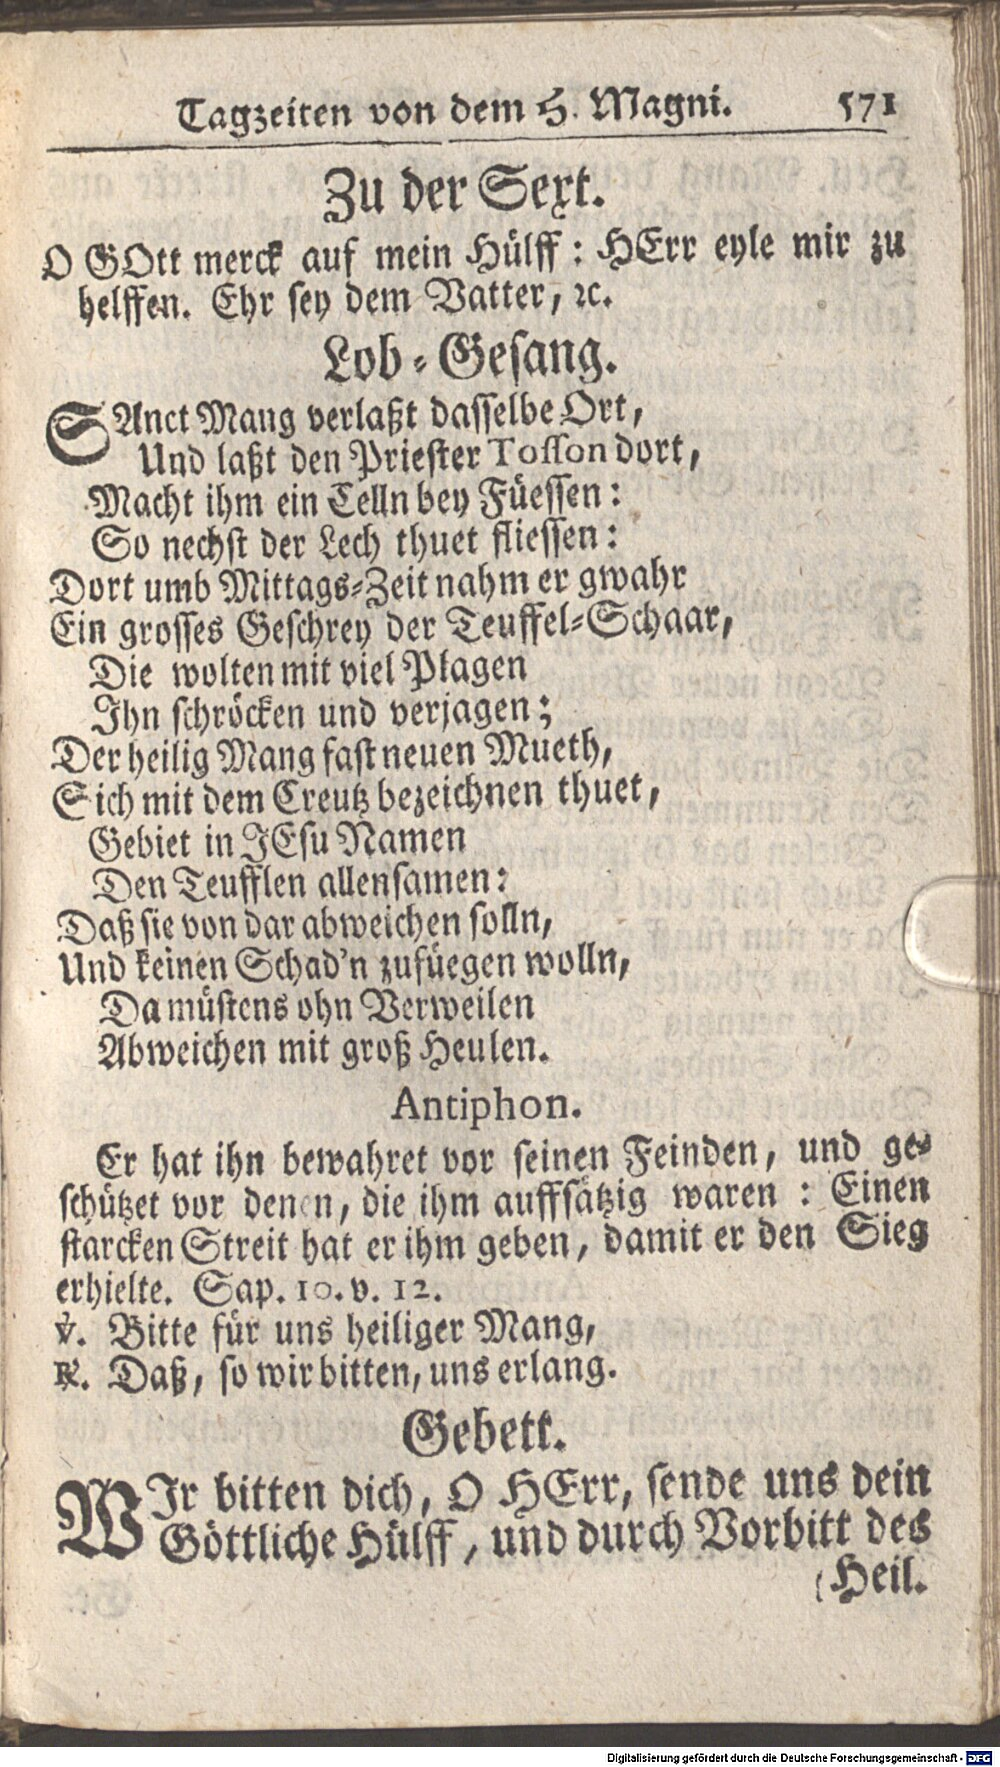 Tagzeiten von dem H. Magni. 571
Zu der Sext.
O GOtt merck auf mein Hülff : HErr eyle mir zu
helffen. Ehr sey dem Vatter, ꝛc.
Lob-Gesang.
SAnct Mang verlaßt dasselbe Ort,
Und laßt den Priester Tosson dort,
Macht ihm ein Celln bey Füessen:
So nechst der Lech thuet fliessen:
Dort umb Mittags-Zeit nahm er gwahr
Ein grosses Geschrey der Teuffel-Schaar,
Die wolten mit viel Plagen
Ihn schröcken und verjagen;
Der heilig Mang fast neuen Mueth,
Sich mit dem Creutz bezeichnen thuet,
Gebiet in JEsu Namen
Den Teufflen allensamen:
Daß sie von dar abweichen solln,
Und keinen Schad'n zufüegen wolln,
Da müstens ohn Verweilen
Abweichen mit groß Heulen.
Antiphon.
Er hat ihn bewahret vor seinen Feinden, und ge-
schützet vor denen, die ihm auffsätzig waren : Einen
starcken Streit hat er ihm geben, damit er den Sieg
erhielte. Sap. 10. v. 12.
℣. Bitte für uns heiliger Mang,
℟. Daß, so wir bitten, uns erlang.
Gebett.
WIr bitten dich, O HErr, sende uns dein
Göttliche Hülff, und durch Vorbitt des
Heil.
Digitalisierung gefördert durch die Deutsche Forschungsgemeinschaft - DFG